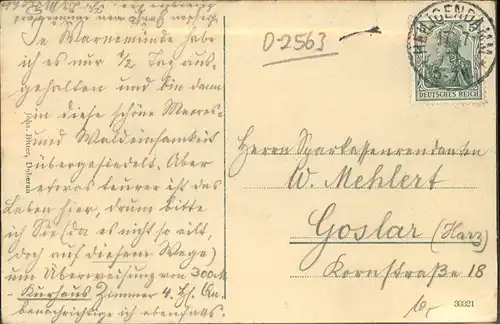 In Warnemünde habe
ich es nur 1/2 Tag aus-
gehalten und bin dann
in diese schöne Meeres-
und Waldeinsamkeit
übergesiedelt. Aber
etwas teurer ist das
Leben hier, drum bitte
ich Sie (da es nicht so eilt,
doch auf diesem Wege)
um Überweisung von 300 M
- Kurhaus Zimmer 4.
benachrichtige ich ebenfalls.
Joh. Beuer, Doberan
0-2563
HEILIGENDAMM
DEUTSCHES REICH
Herrn Sparkassenrendanten
W. Mehlert
Goslar (Harz)
Kornstraße 18
30321